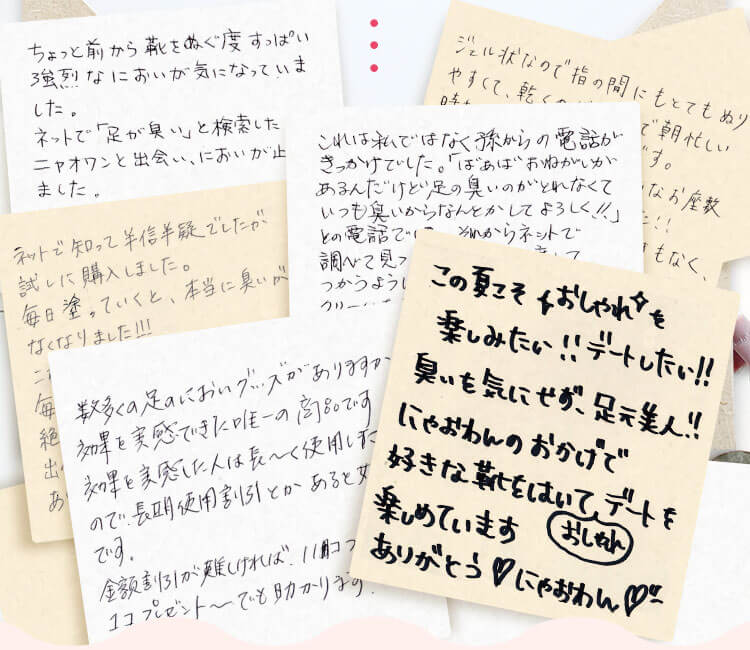 ちょっと前から靴をぬぐ度すっぱい
強烈なにおいが気になっていま
した。
ネットで「足が臭い」と検索した
ニャオワンと出会い、においが止
ました。
ジェル状なので指の間にもとてもぬり
やすくて、乾く
で朝忙しい
です。
なお座敷
た!!
もなく、
これは私ではなく孫からの電話が
きっかけでした。「ばぁばおねがいが
あるんだけど足の臭いのがとれなくて
いつも臭いからなんとかしてよろしく!!」
との電話で それからネットで
調べて見つ
つかうよう
クリー
ネットで知って半信半疑でしたが
試しに購入しました。
毎日塗っていくと、本当に臭いが
なくなりました!!!
毎
絶
出
あ
数多くの足のにおいグッズがありますが
効果を実感できた唯一の商品です
効果を実感した人は長〜く使用した
ので、長期使用割引とかあると
です。
金額割引が難しければ、11コ
1コプレゼント〜でも助かります。
この夏こそおしゃれを
楽しみたい!!デートしたい!!
臭いを気にせず、足元美人!!
にゃおわんのおかげで
好きな靴をはいて、デートを
楽しめています おしゃれ
ありがとう♡にゃおわん♡